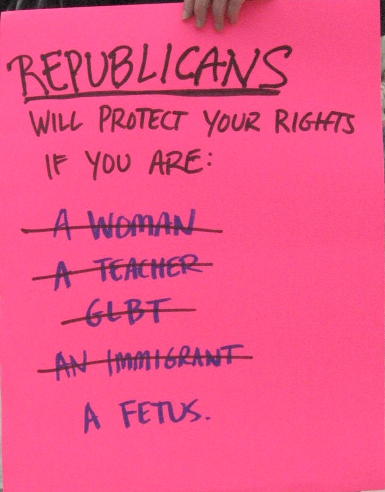 REPUBLICANS
WILL PROTECT YOUR RIGHTS
IF YOU ARE:
A WOMAN
A TEACHER
GLBT
AN IMMIGRANT
A FETUS.